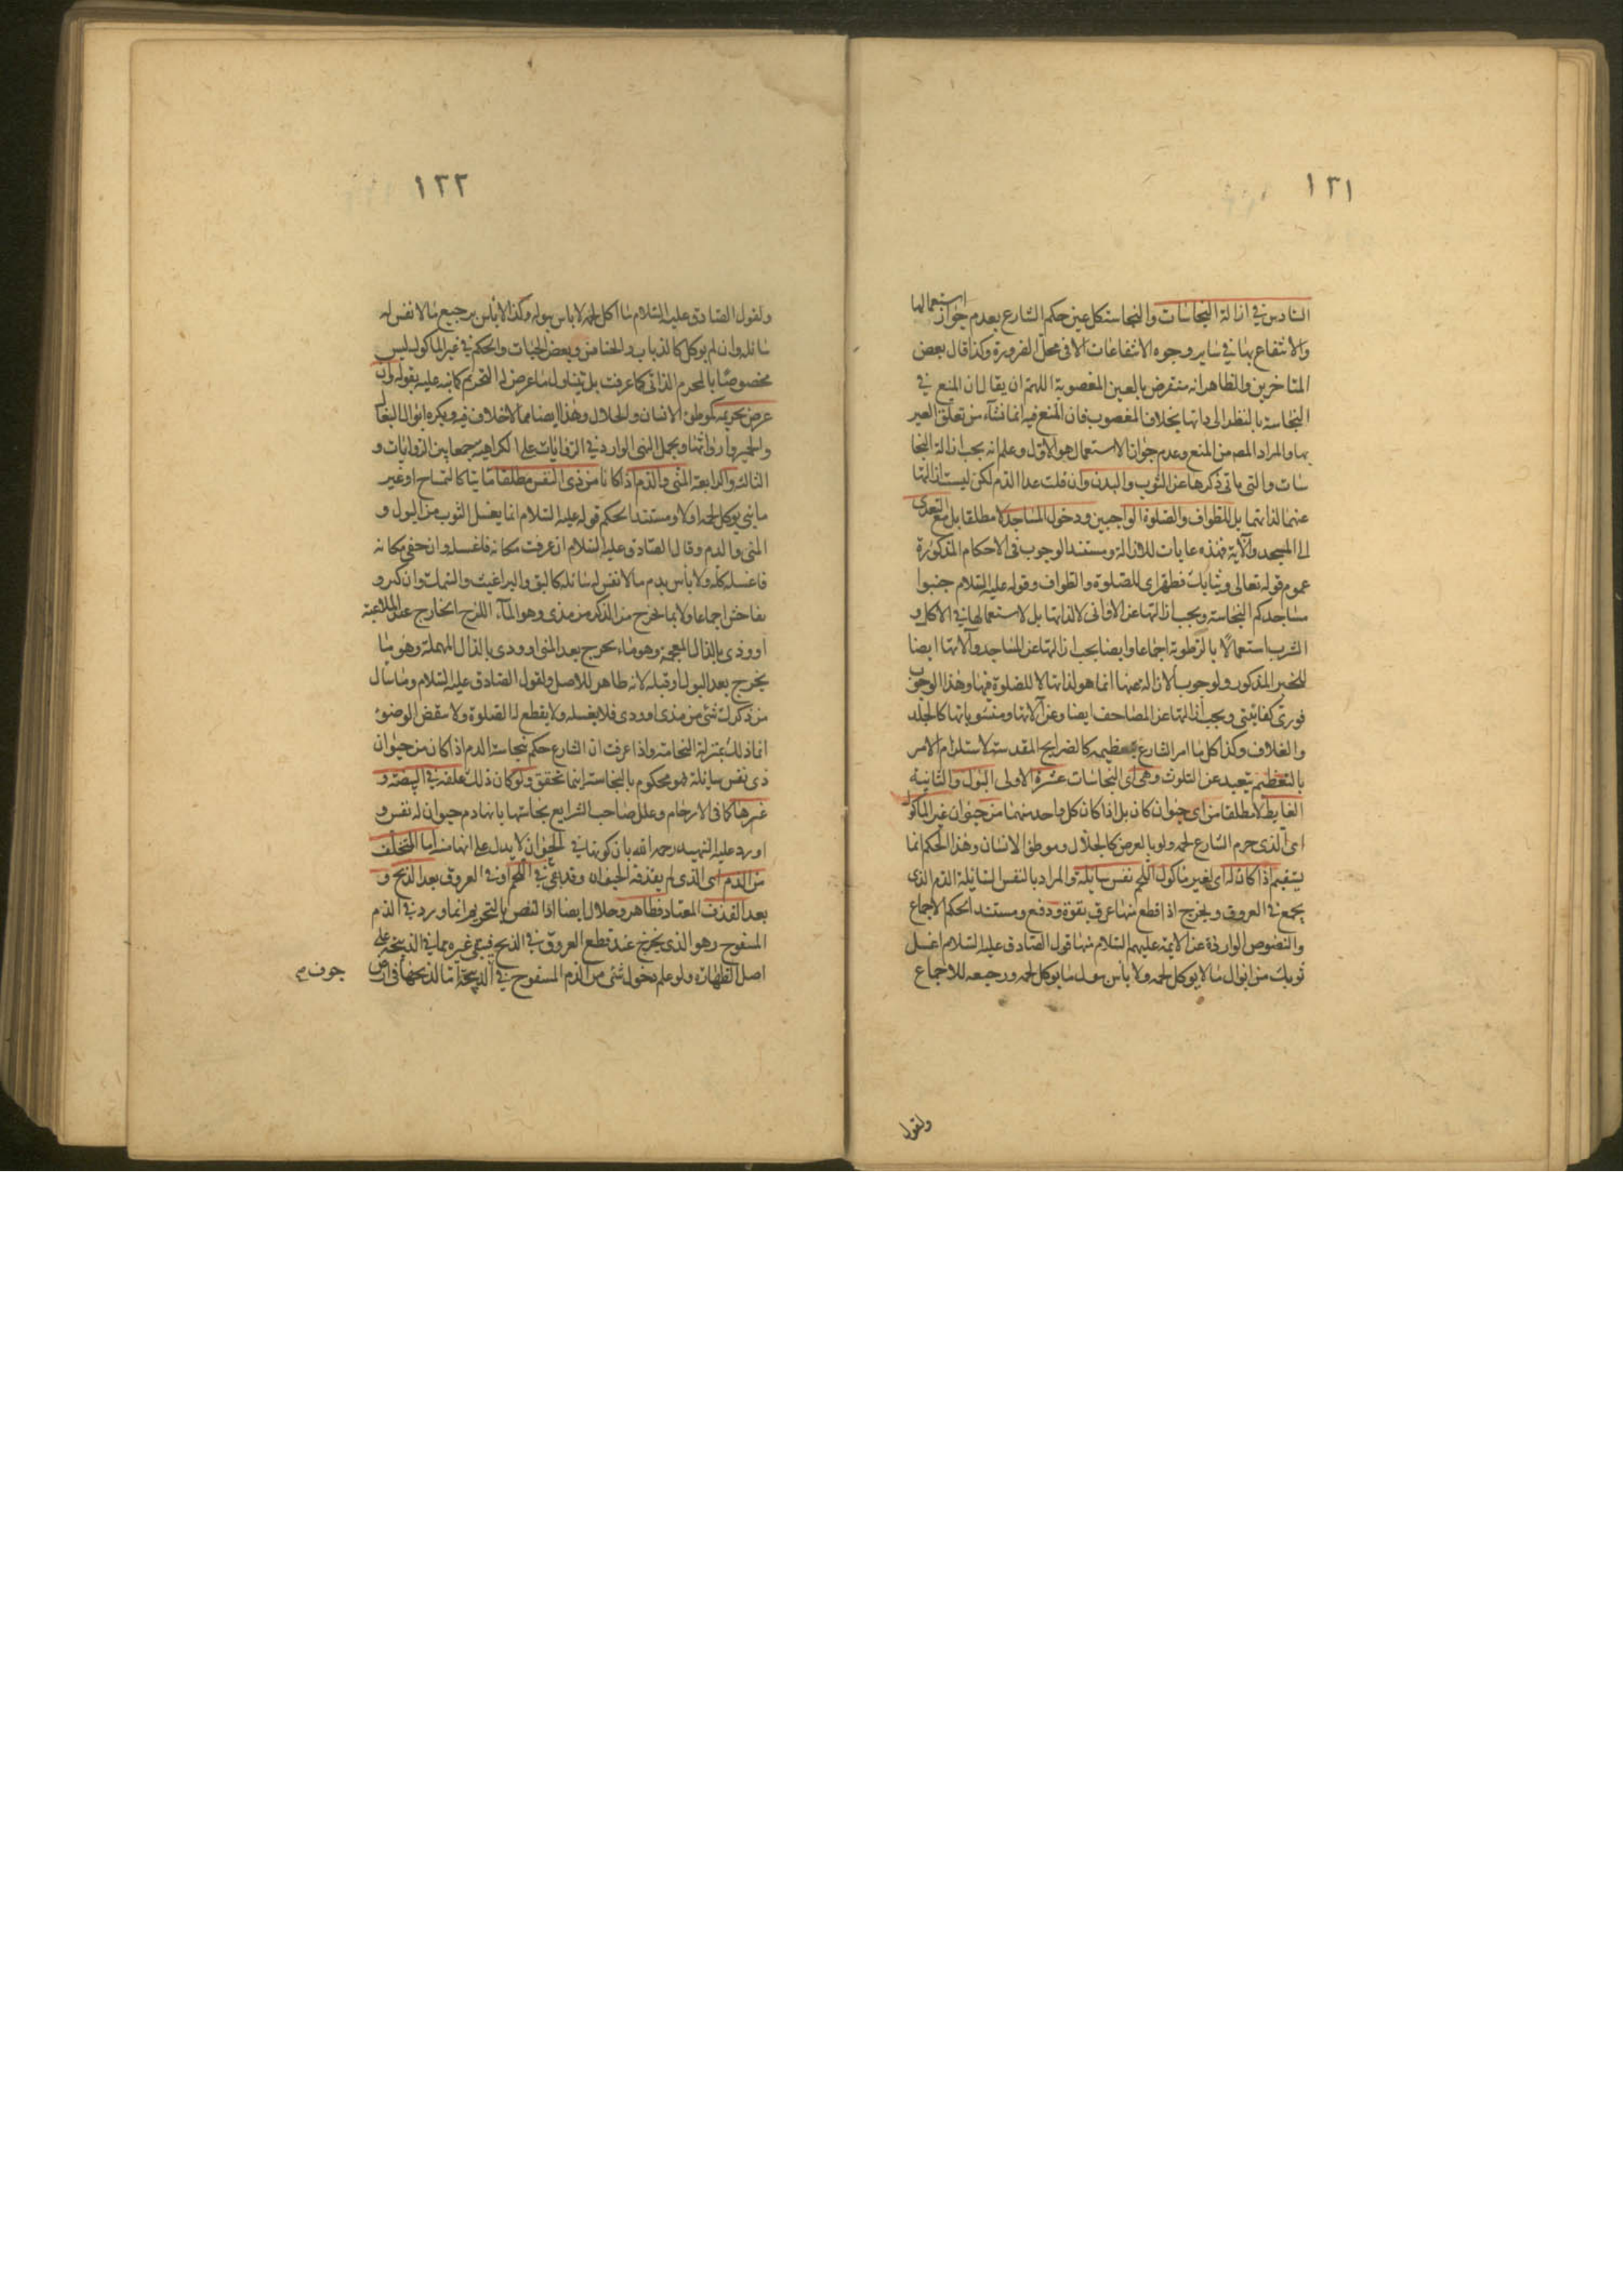 ١٢١
السادس في ازالة النجاسات والنجاسة كل عين حكم الشارع بعدم جواز استعمالها
والانتفاع بها في ساير وجوه الانتفاعات الا في محل الضرورة وكذا قال بعض
المتاخرين والظاهر انه منقوض بالعين المغصوبة اللهم ان يقال ان المنع في
النجاسة بالنظر الى ذاتها بخلاف المغصوب فان المنع فيه انما نشاء من تعلق الغير
بها والمراد المص من المنع وعدم جواز الاستعمال هو الاول وعلم انه يجب ازالة النجا
سات والتي ياتي ذكرها عن الثوب والبدن وان قلت عدا الدم لكن ليست ازالتها
عنهما لذاتهما بل للطواف والصلوة الواجبين ودخول المساجد لا مطلقا بل مع التعدى
الى المسجد والآية فهذه غايات للازالة ومستند الوجوب في الاحكام المذكورة
عموم قوله تعالى وثيابك فطهر اى للصلوة والطواف وقوله عليه السلام جنبوا
مساجدكم النجاسة ويجب ازالتها عن الاوانى لا لذاتها بل لاستعمالها في الاكل و
الشرب استعمالا بالرطوبة اجماعا وايضا يجب ازالتها عن المساجد وآلاتها ايضا
للخبر المذكور ولوجوب الازالة عنها انما هو لذاتها لا للصلوة فيها وهذا الوجوب
فورى كفايتى ويجب ازالتها عن المصاحف ايضا وعن آلاتها ومنسوباتها كالجلد
والغلاف وكذا كل ما امر الشارع بتعظيمه كالضرايح المقدسة لاستلزام الامر
بالتعظيم تبعيد عن التلوث وهى اى النجاسات عشرة الاولى البول والثانية
الغايط لا مطلقا من اى حيوان كان بل اذا كان كل واحد منهما من حيوان غير الماكول
اى الذى حرم الشارع لحمه ولو بالعرض كالجلال وموطؤ الانسان وهذا الحكم انما
يستقيم اذا كان له اى لغير ماكول اللحم نفس سايلة والمراد بالنفس السائلة الدم الذى
يجمع في العروق ويخرج اذا قطع منها عرق بقوة ودفع ومستند الحكم الاجماع
والنصوص الواردة عن الايمة عليهم السلام منها قول الصادق عليه السلام اغسل
ثوبك من ابوال ما لا يوكل لحمه ولا بأس ببول ما يوكل لحمه ورجيعه للاجماع
ولقول
١٢٢
ولقول الصادق عليه السلام ما اكل لحمه لا باس ببوله وكذا لا بأس برجيع ما لا نفس له
سائله وان لم يوكل كالذباب والخنافس وبعض الحيات والحكم في غير الماكول ليس
مخصوصا بالمحرم الذاتى كما عرفت بل يتناول ما عرض له التحريم كما نبه عليه بقوله وان
عرض تحريمه كموطؤ الانسان والجلال وهذا ايضا مما لا خلاف فيه ويكره ابوال البغال
والحمير وارواثها ويحمل النهى الوارد في الروايات على الكراهية جمعا بين الروايات و
الثالثه والرابعة المنى والدم اذا كانا من ذى النفس مطلقا مايتا كالتمساح او غير
مائى يوكل لحمه اولا ومستند الحكم قوله عليه السلام انما يغسل الثوب من البول و
المنى والدم وقال الصادق عليه السلام ان عرفت مكانه فاغسله وان خفى مكانه
فاغسله كله ولا بأس بدم ما لا نفس له سائله كالبق والبراغيث والسمك وان كثر و
تفاحش اجماعا ولا بما يخرج من الذكر من مذى وهو الماء اللزج الخارج عند الملاعبة
او وذى بالذال المعجمة وهو ماء يخرج بعد المنى او ودى بالدال المهملة وهو ما
يخرج بعد البول او قبله لانه طاهر للاصل ولقول الصادق عليه السلام وما سال
من ذكرك شئ من مذى او ودى فلا يغسله ولا يقطع له الصلوة ولا ينقض الوضوء
انما ذلك بمنزلة النخامة واذا عرفت ان الشارع حكم بنجاسة الدم اذا كان من حيوان
ذى نفس سايلة فهو محكوم بالنجاسة اينما تحقق ولو كان ذلك علقه في البيضة و
غيرها كما في الارحام وعلل صاحب الشرايع نجاستها بانها دم حيوان له نفس و
اورد عليه الشهيد رحمه الله بان كونها في الحيوان لا يدل على انها منه اما المتخلف
من الدم اى الذى لم يقذفه الحيوان وقد بقي في اللحم او في العروق بعد الذبح و
بعد القذف المعتاد فطاهر وحلال ايضا اذا النص بالتحريم انما ورد في الدم
المسفوح وهو الذى يخرج عند قطع العروق في الذبح فيبقى غيره مما في الذبيحة على
اصل الطهارة ولو علم دخول شئ من الدم المسفوح في الذبيحة اما لذبحها في ارض
جوف م